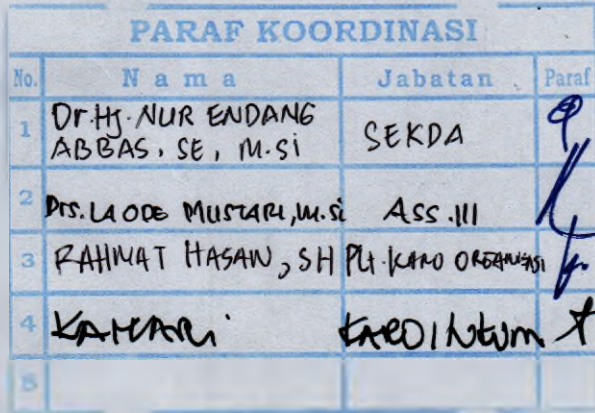 PARAF KOORDINASI
No. Nama Jabatan Paraf
1 Dr. Hj. NUR ENDANG
ABBAS, SE, M.Si SEKDA
2 Drs. LA ODE MUSTARI, M.Si ASS. III
3 RAHMAT HASAN, SH Plt. KARO ORGANISASI
4 KAMARI
5